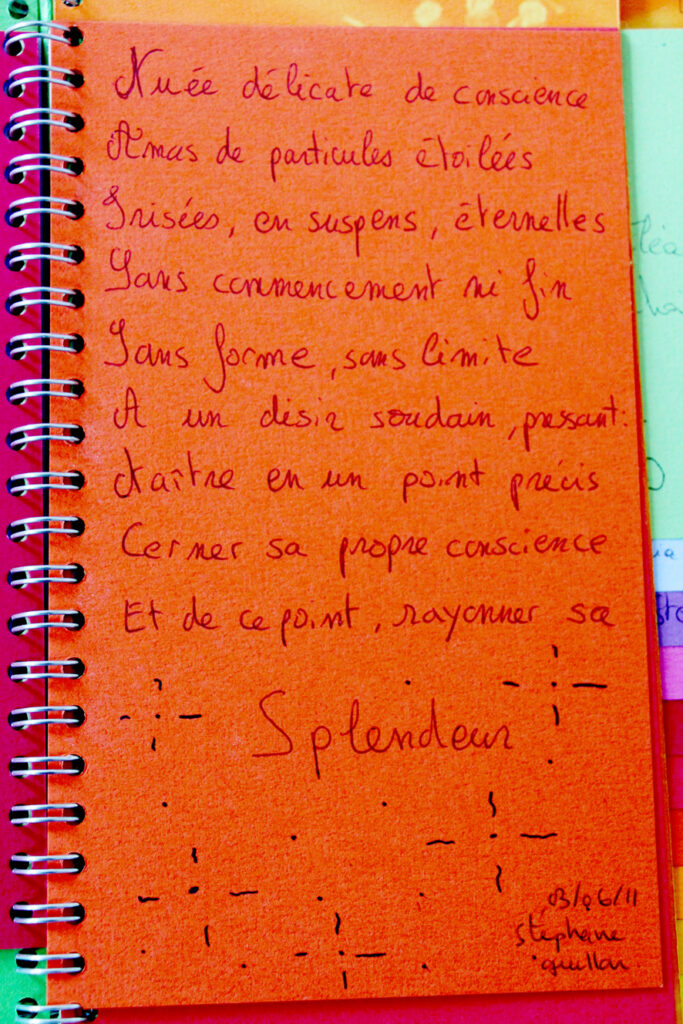 Nuée délicate de conscience
Amas de particules étoilées
Irisées, en suspens, éternelles
Sans commencement ni fin
Sans forme, sans limite
A un désir soudain, pressant:
Naître en un point précis
Cerner sa propre conscience
Et de ce point, rayonner sa
Splendeur
03/06/11
stéphane
guillon